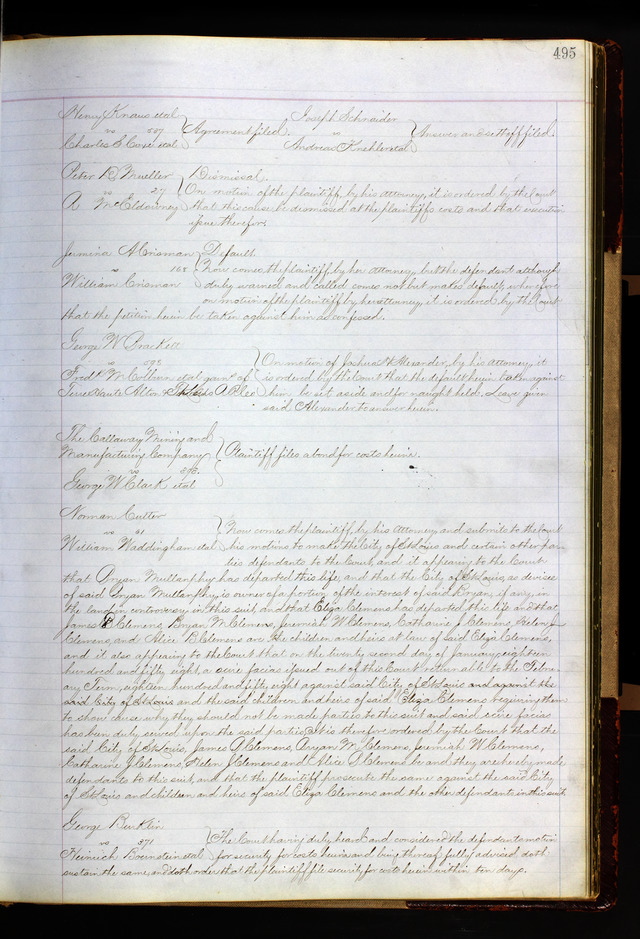 495
Henry Knaus etal
vs 507 Agreement filed.
Charles S Coxe etal
Joseph Schnaider
vs Answer and sett off filed.
Andreas Krehler etal
Peter D Mueller Dismissal.
vs 27 On motion of the plaintiff, by his attorney, it is ordered by the Court
A McEldowney that this cause be dismissed at the plaintiffs costs and that execution
issue therefor.
Jemima A Crisman Default.
vs 165 Now comes the plaintiff by her attorney, but the defendant although
William Crisman duly warned and called comes not but makes default; wherefore
on motion of the plaintiff by her attorney, it is ordered by the Court
that the petition herein be taken against him as confessed.
George W Brackett
vs 593 On motion of Joshua H Alexander, by his Attorney, it
Fredk W etal garns of is ordered by the Court that the default herein taken against
Terre Haute Alton & St Louis him be set aside and for naught held, Leave given
said Alexander to answer herein.
The Callaway Mining and
Manufacturing Company Plaintiff files a bond for costs herein.
vs
George W Clark etal
Norman Cutter Now comes the plaintiff by his attorney and submits to the Court
vs 91
William Waddingham etal his motions to make the City of St Louis and certain other par
ties defendants to the Court, and it appearing to the Court
that Bryan Mullanphy has departed this life, and that the City of St Louis, as devisee
of said Bryan Mullanphy is owner of a portion of the interest of said Bryan, if any, in
the land in controversy in this suit, and that Eliza Clemens has departed this life and that
James Clemens, Bryan M Clemens, Jeremiah W Clemens, Catharine J Clemens, Helen J
Clemens, and Alice B Clemens are the children and heirs at law of said Eliza Clemens,
and it also appearing to the Court that on the twenty second day of January, eighteen
hundred and fifty eight, a scire facias issued out of this Court returnable to the Febru
ary Term, eighteen hundred and fifty eight against said City of St Louis and against the
said City of St Louis and the said children and heirs of said Eliza Clemens requiring them
to show cause why they should not be made parties to this suit and said scire facias
has been duly served upon the said parties, it is therefor ordered by the Court that the
said City of St Louis, James Clemens, Bryan M Clemens, Jeremiah W Clemens,
Catharine J Clemens, Helen J Clemens and Alice B Clemens be and they are hereby made
defendants to this suit, and that the plaintiff prosecute the same against the said City
of St Louis and children and heirs of said Eliza Clemens and the other defendants in this suit
George Benklin
vs 571 The Court having duly heard and considered the defendants motion
Heinrich Boernstein etal for security for costs herein and being thereof fully advised doth
sustain the same, and doth order that the plaintiff file security for costs herein within ten days.